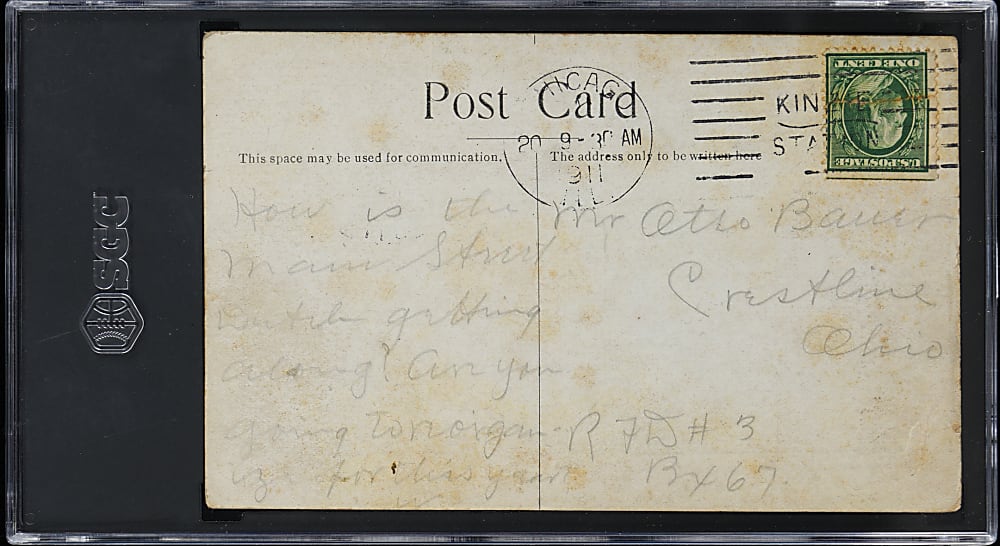 SGC
Post Card
CHICAGO
20 9-30 AM
1911
ILL.
KIN
STA
ONE CENT
U.S. POSTAGE
This space may be used for communication.
The address only to be written here
How is the
Main Street
getting
along? Are you
going to reorgan-
ize for this year
Mr Otto Bauer
Crestline
Ohio
R F D # 3
Bx 67.